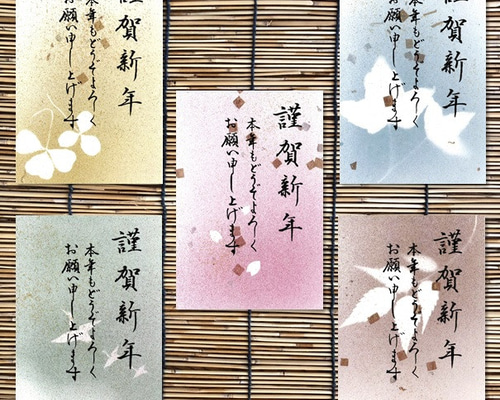 謹賀新年
本年もどうぞよろしく
お願い申し上げます
謹賀新年
本年もどうぞよろしく
お願い申し上げます
謹賀新年
本年もどうぞよろしく
お願い申し上げます
謹賀新年
本年もどうぞよろしく
お願い申し上げます
謹賀新年
本年もどうぞよろしく
お願い申し上げます